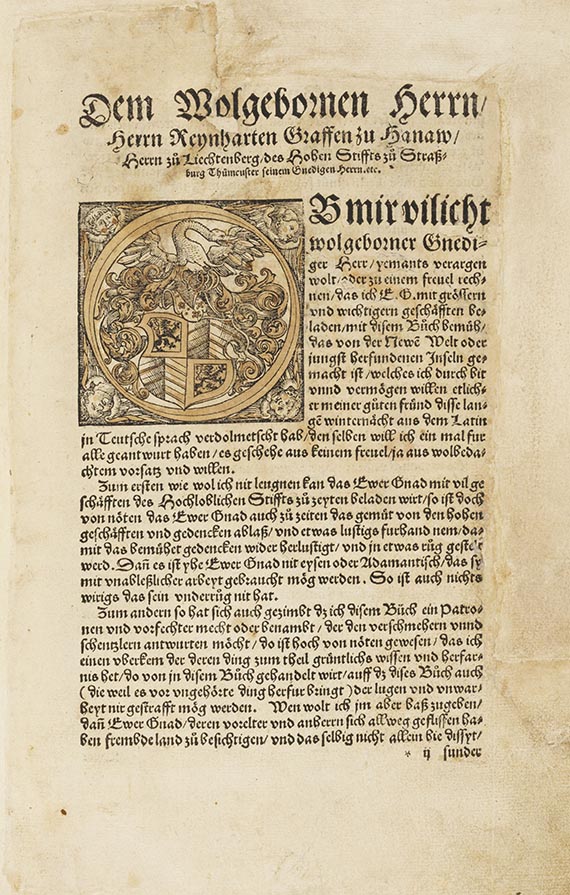 Dem Wolgebornen Herrn/
Herrn Reynharten Graffen zu Hanaw/
Herrn zů Liechtenberg/des Hohen Stiffts zů Straß-
burg Thůmcuster seinem Gnedigen Herrn.etc.
B mir vilicht
wolgeborner Gnedi-
ger Herr/yemants verargen
wolt/oder zu einem freuel rech-
nen/das ich E. G. mit grössern
vnd wichtigern geschäfften be-
laden/mit disem Bůch bemüh/
das von der Newē Welt oder
jungst herfundenen Inseln ge-
macht ist/welches ich durch bit
vnnd vermögen willen etlich-
er meiner gůten fründ disse lan-
gē winternächt aus dem Latin
jn Teutsche sprach verdolmetscht hab/den selben will ich ein mal fur
alle geantwurt haben/es geschehe aus keinem freuel/ja aus wolbeda-
chtem vorsatz vnd willen.
Zum ersten wie wol ich nit lengnen kan das Ewer Gnad mit vil ge
schäfften des Hochloblichen Stiffts zů zeyten beladen wirt/so ist doch
von nöten das Ewer Gnad auch zů zeiten das gemüt von den hohen
geschäfften vnd gedencken ablaß/vnd etwas lustigs furhand nem/da-
mit das bemühet gedencken wider herlustigt/vnd jn etwas rüg gestelt
werd. Dañ es ist yhe Ewer Gnad nit eysen oder Adamantisch/das sy
mit vnableßlicher arbeyt gebraucht mög werden. So ist auch nichts
wirigs das sein vnderrüg nit hat.
Zum andern so hat sich auch gezimbt dz ich disem Bůch ein Patro-
nen vnd vorfechter mecht oder benambt/der den verschmehern vnnd
schentzlern antwurten möcht/do ist hoch von nöten gewesen/das ich
einen vberkem der deren ding zum theil grüntlichs wissen vnd herfar-
nis het/do von jn disem Bůch gehandelt wirt/auff dz dises Bůch auch
(die weil es vor vngehörte ding herfur bringt)der lugen vnd vnwar-
heyt nit gestrafft mög werden. Wen wolt ich jm aber baß zugeben/
dañ Ewer Gnad/deren vorelter vnd anherrn sich allweg geflissen ha-
ben frembde land zů besichtigen/vnd das selbig nicht allein hie dissyt/
* ij sunder